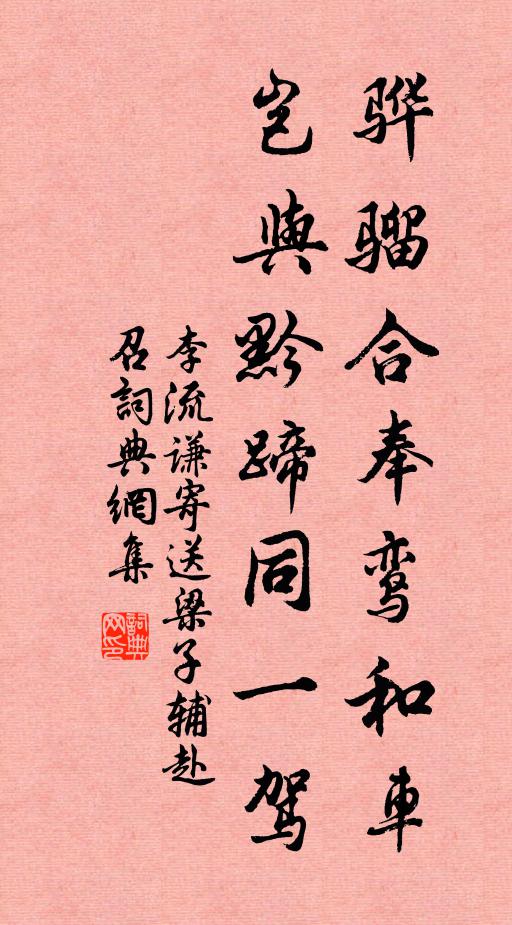 骅骝合奉鸾和车
岂与黔蹄同一驾
李流谦寄送梁子辅赴
召詞典網集
詞典网印